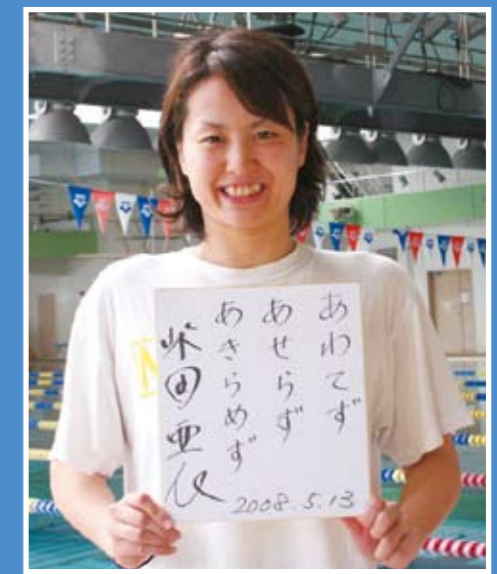 あわてず
あせらず
あきらめず
柴田亜衣
2008.5.13